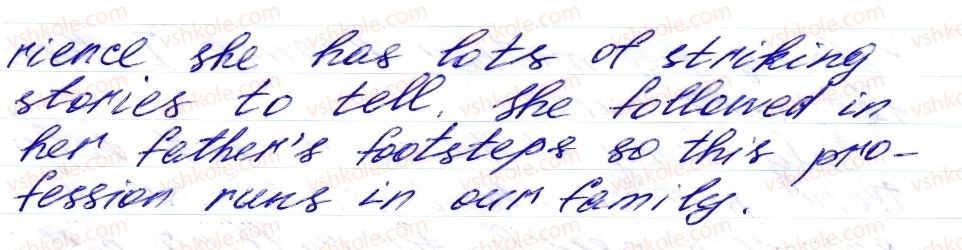 rience she has lots of striking
stories to tell. She followed in
her father's footsteps so this pro-
fession runs in our family.